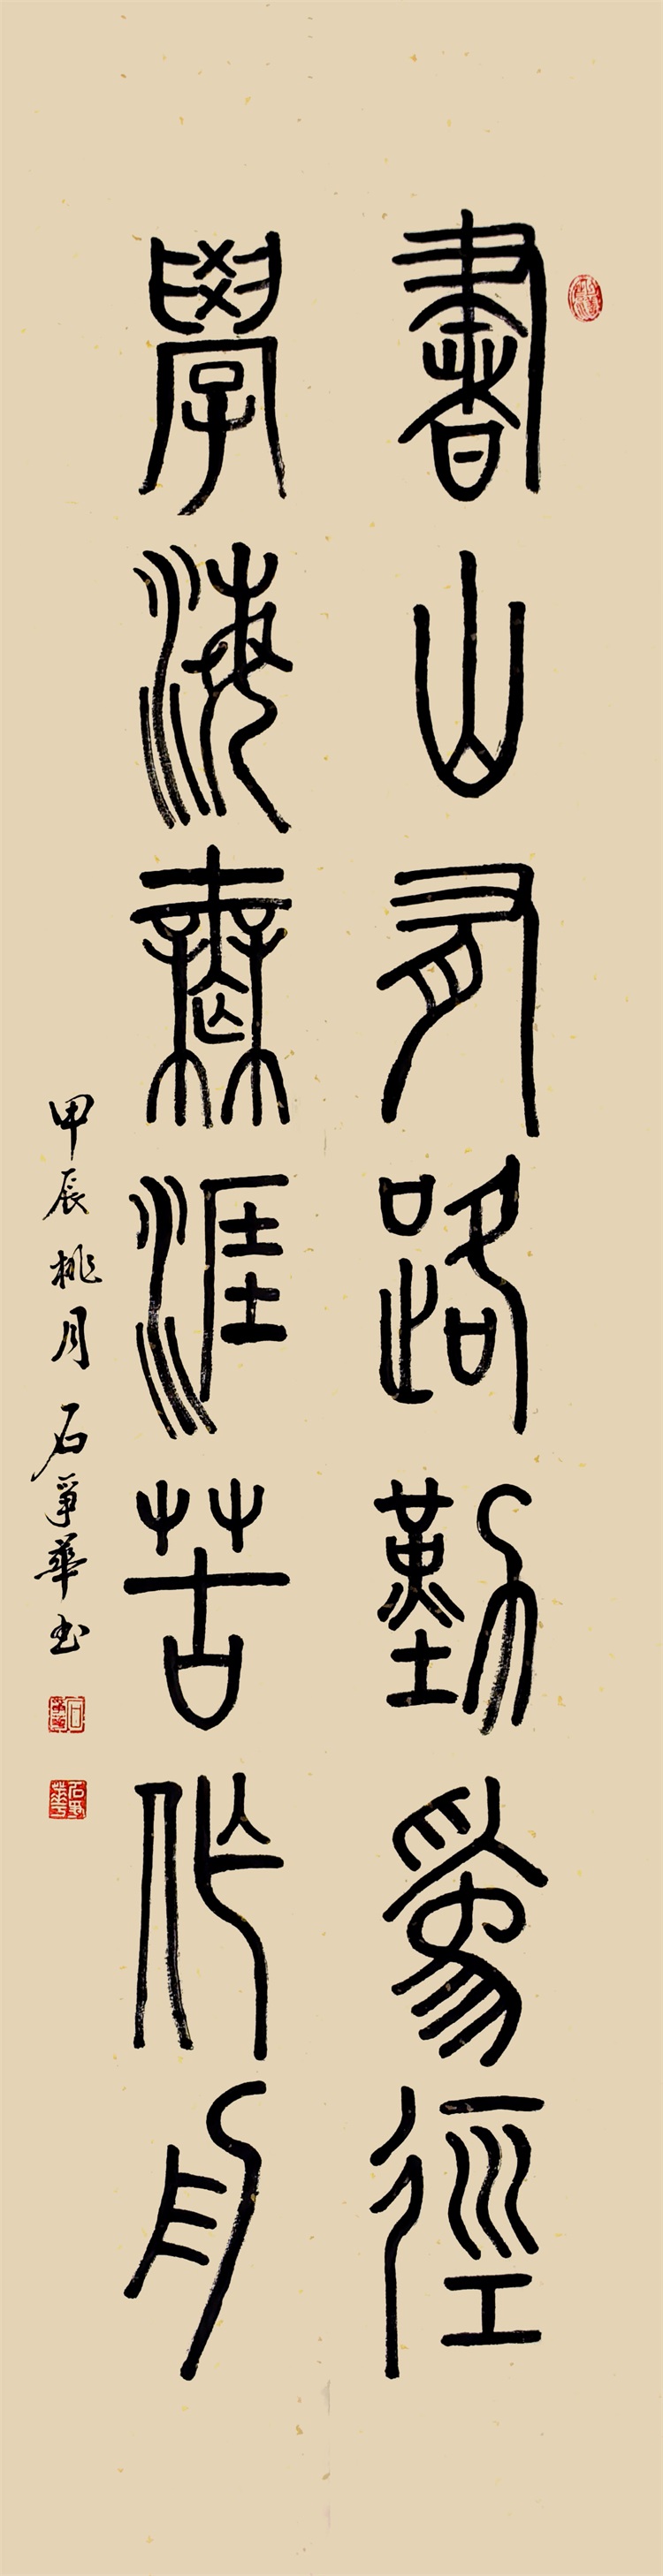 書山有路勤爲徑
學海無涯苦作舟
甲辰桃月石爭華书
石爭華